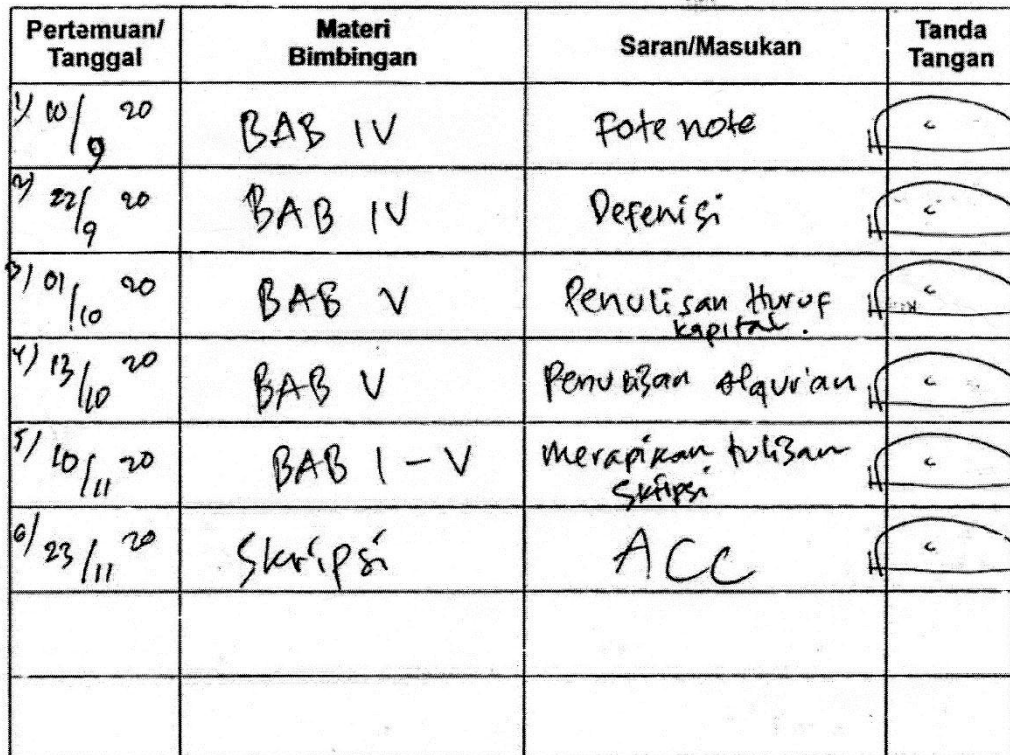 Pertemuan/ Tanggal Materi Bimbingan Saran/Masukan Tanda Tangan
1) 10/9 20 BAB IV Fote note
2) 22/9 20 BAB IV Defenisi
3) 01/10 20 BAB V Penulisan Huruf kapital.
4) 13/10 20 BAB V Penulisan Alqur'an
5) 10/11 20 BAB I - V Merapikan tulisan Skripsi
6) 23/11 20 Skripsi ACC